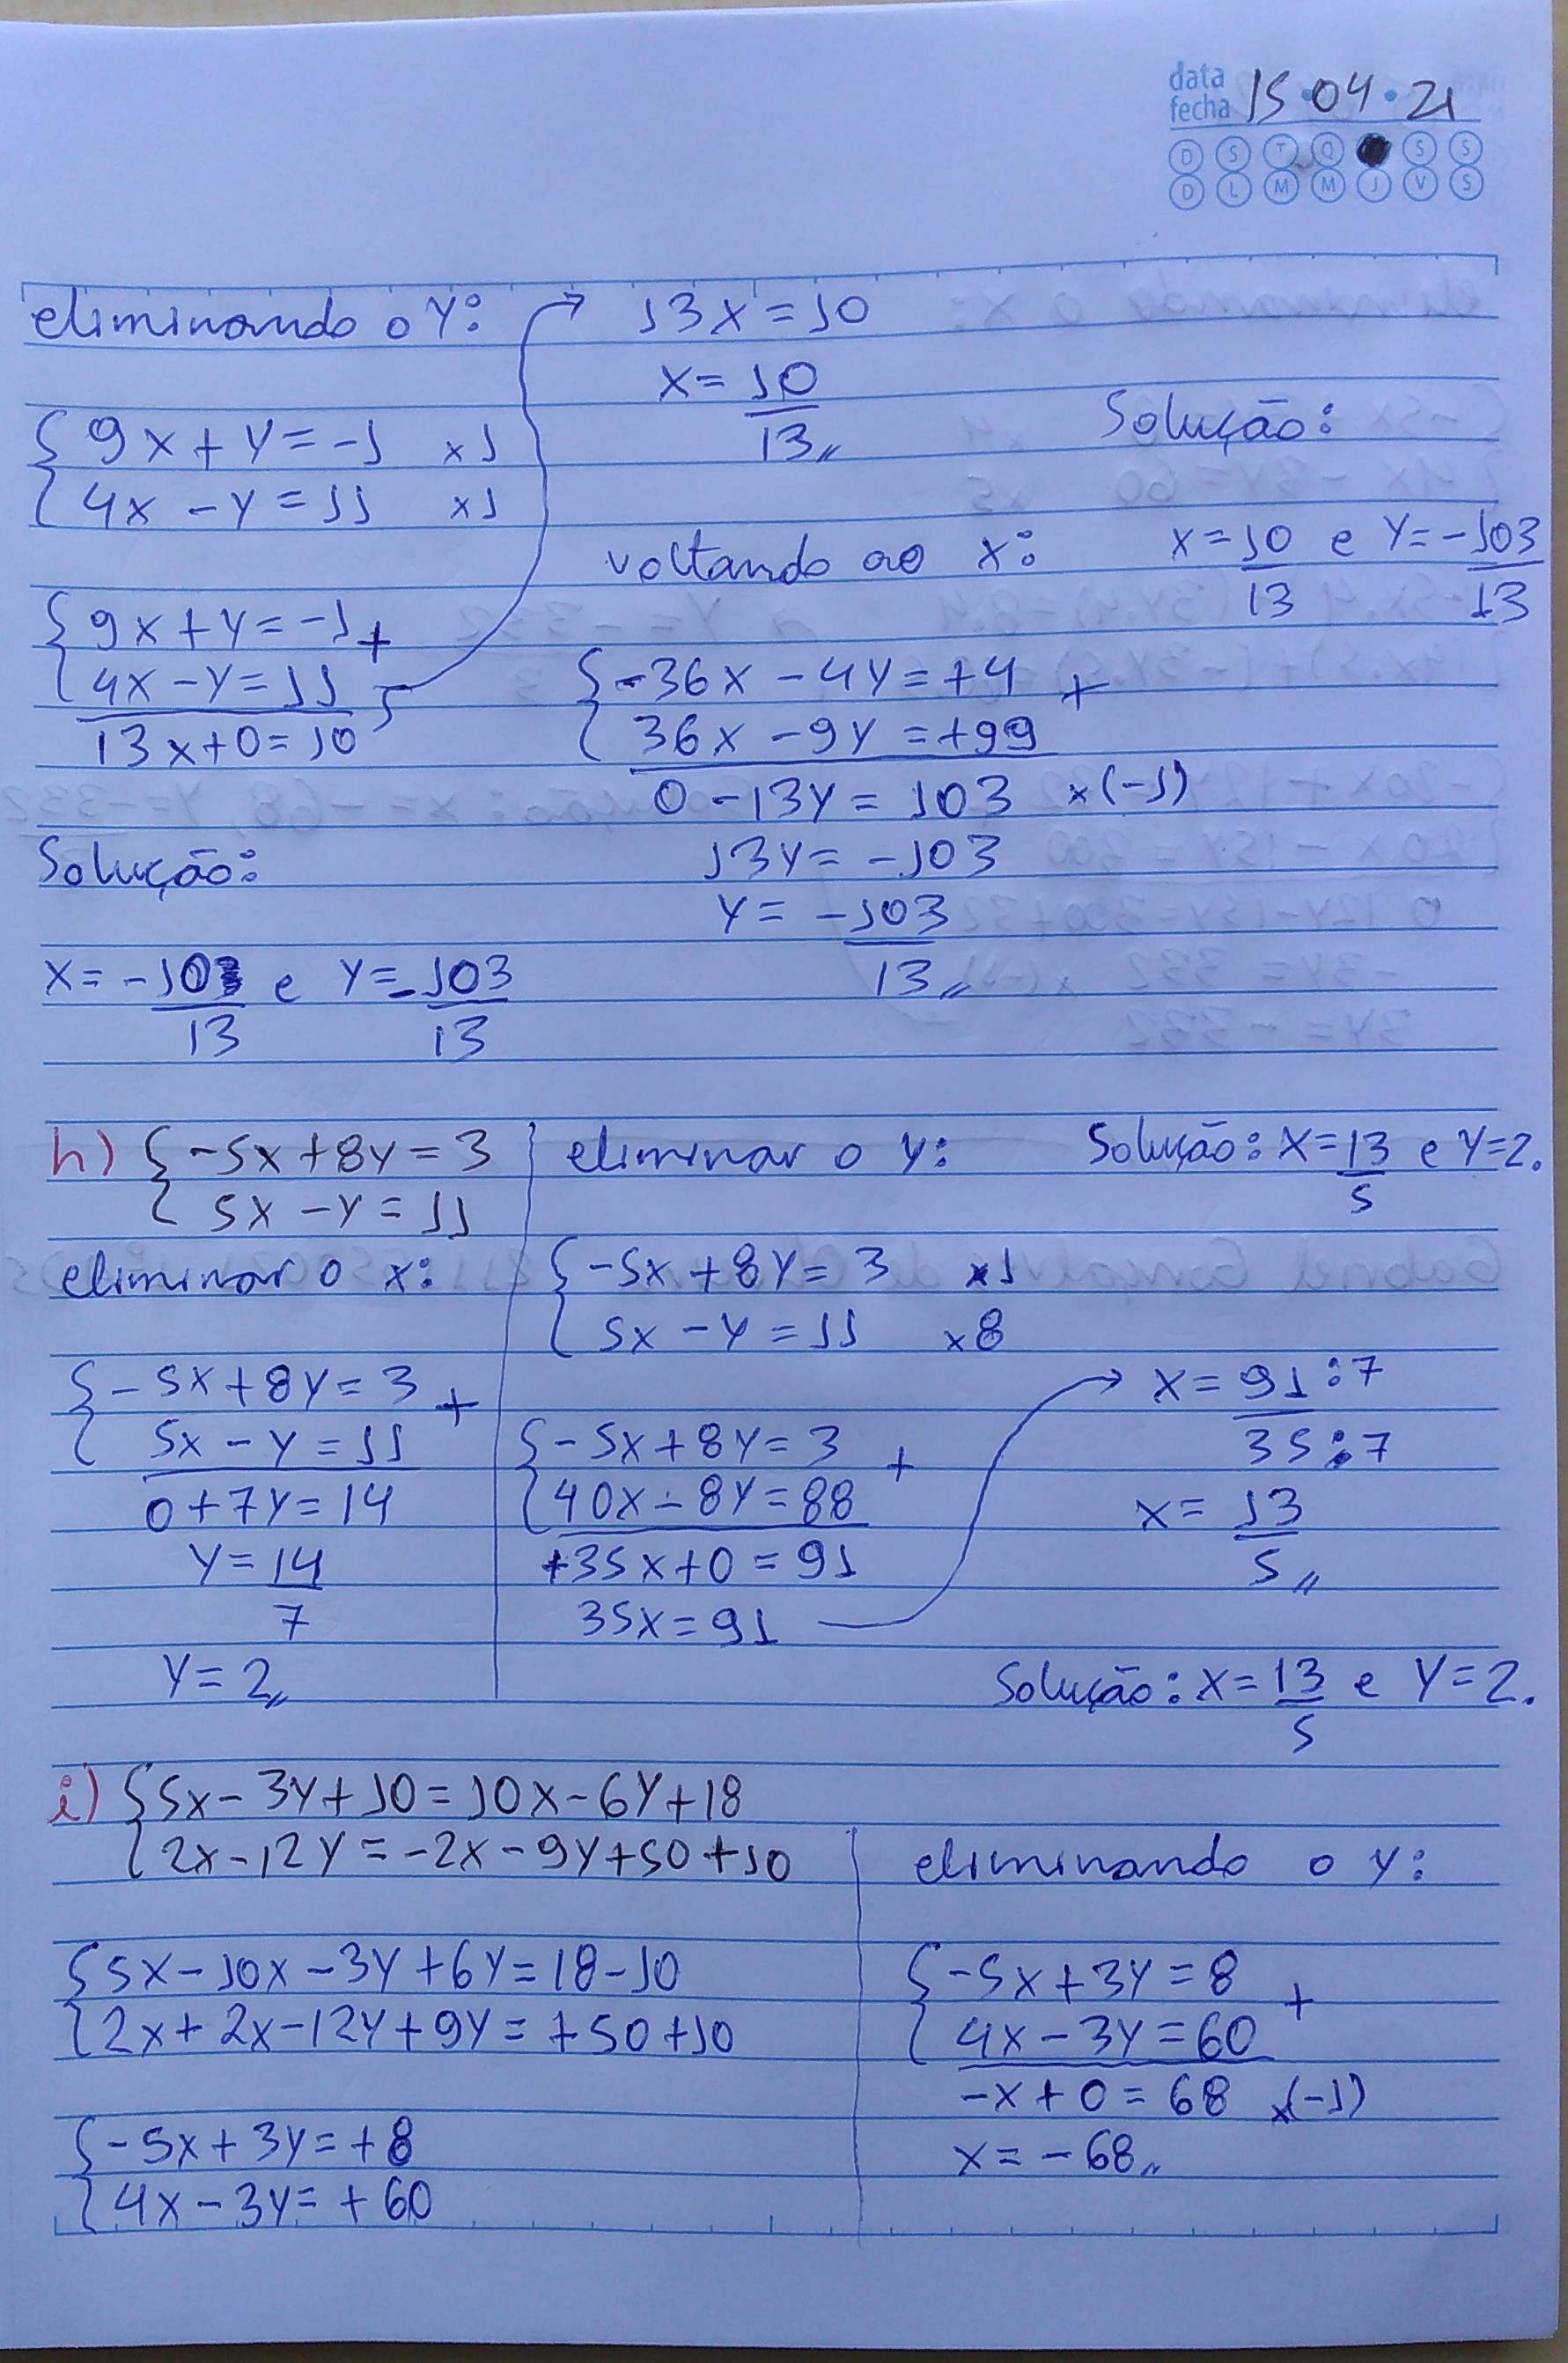 data
fecha 15·04·21
D S T Q S S
D L M M J V S
eliminando o Y:
{ 9x + y = -1 x1
{ 4x - y = 11 x1
{ 9x + y = -1 +
{ 4x - y = 11
13x + 0 = 10
13x = 10
x = 10/13
voltando ao x:
{ -36x - 4y = +4 +
{ 36x - 9y = +99
0 - 13y = 103 x(-1)
13y = -103
y = -103/13
Solução:
x = 10/13 e y = -103/13
Solução:
x = -103/13 e y = -103/13
h) { -5x + 8y = 3
{ 5x - y = 11
eliminar o x:
{ -5x + 8y = 3 +
{ 5x - y = 11
0 + 7y = 14
y = 14/7
y = 2
eliminar o y:
{ -5x + 8y = 3 x1
{ 5x - y = 11 x8
{ -5x + 8y = 3 +
{ 40x - 8y = 88
+35x + 0 = 91
35x = 91
Solução: x = 13/5 e y = 2.
x = 91:7/35:7
x = 13/5
Solução: x = 13/5 e y = 2.
i) { 5x - 3y + 10 = 10x - 6y + 18
{ 2x - 12y = -2x - 9y + 50 + 10
{ 5x - 10x - 3y + 6y = 18 - 10
{ 2x + 2x - 12y + 9y = +50 + 10
{ -5x + 3y = +8
{ 4x - 3y = +60
eliminando o y:
{ -5x + 3y = 8 +
{ 4x - 3y = 60
-x + 0 = 68 x(-1)
x = -68